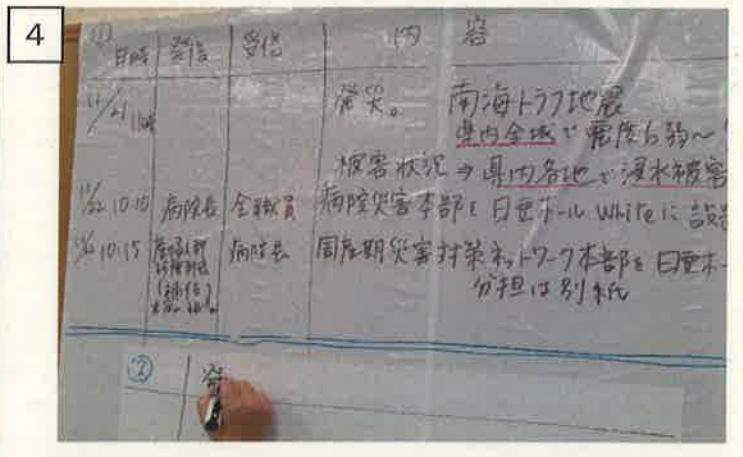 4
①
日時 発信 受信 内 容
11/21 発災。 南海トラフ地震
県内全域で震度6弱〜
被害状況⇒県内各地で浸水被害
11/22 10:10 病院長 全職員 病院災害本部を日亜ホールWhiteに設
10:15 病院長 周産期災害対策ネットワーク本部を日亜ホー
(補佐)
分担は別紙
②
発